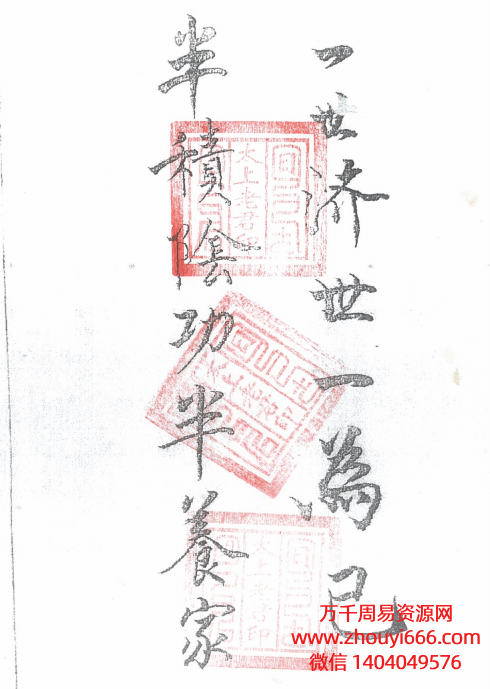 一世济世一為己
半積陰功半養家
太上老君印
太上老君印
万千周易资源网
www.zhouyi666.com
微信 1404049576